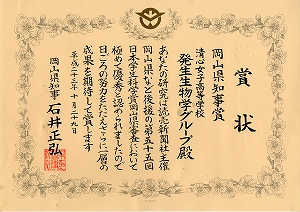 賞状
岡山県知事賞
清心女子高等学校
発生生物学グループ殿
あなたの研究は読売新聞社主催
岡山県など後援の第五十五回
日本学生科学賞岡山県審査において
極めて優秀と認められましたので
日ごろの努力をたたえさらに一層の
成果を期待して賞します
平成二十三年十月二十九日
岡山県知事 石井正弘